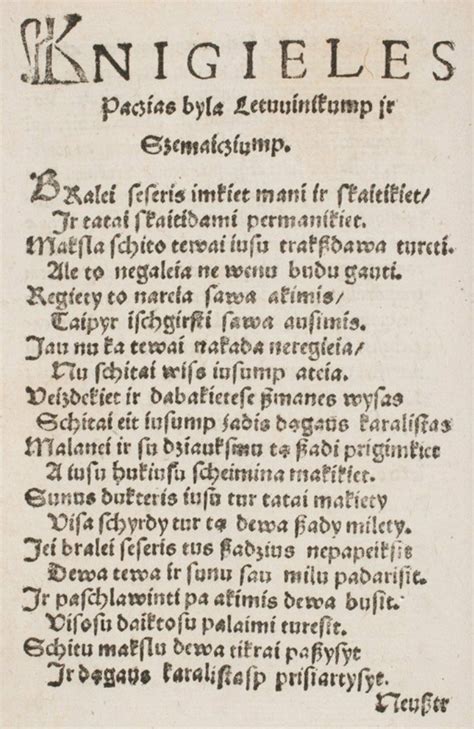 KNIGIELES
Paczias byla Letuuinikump ir
Szemaicziump.
BRalei seseris imkiet mani ir skaitikiet/
Ir tatai skaitidami permanikiet.
Maksla schito tewai iusu trakßdawa tureti.
Ale to negaleia ne wenu budu gauti.
Regiety to nareia sawa akimis/
Taipyr ischgirsti sawa ausimis.
Jau nu ka tewai nakada neregieia/
Nu schitai wiss iusump ateia.
Veizdekiet ir dabakietese ßmanes wysas
Schitai eit iusump ßadis dągaus karalistas
Malanei ir su dziauksmu tą ßadi prigimkiet
A iusu hukiusu scheimina makikiet.
Sunus dukteris iusu tur tatai makiety
Visa schyrdy tur tą dewa ßady milety.
Jei bralei seseris tus ßadzius nepapeiksit
Dewa tewa ir sunu sau milu padarisit.
Ir paschlawinti pa akimis dewa busit.
Visosu daiktosu palaimi turesit.
Schitu makslu dewa tikrai paßysyt
Ir dągaus karalistasp prisiartysyt.
Neußtr